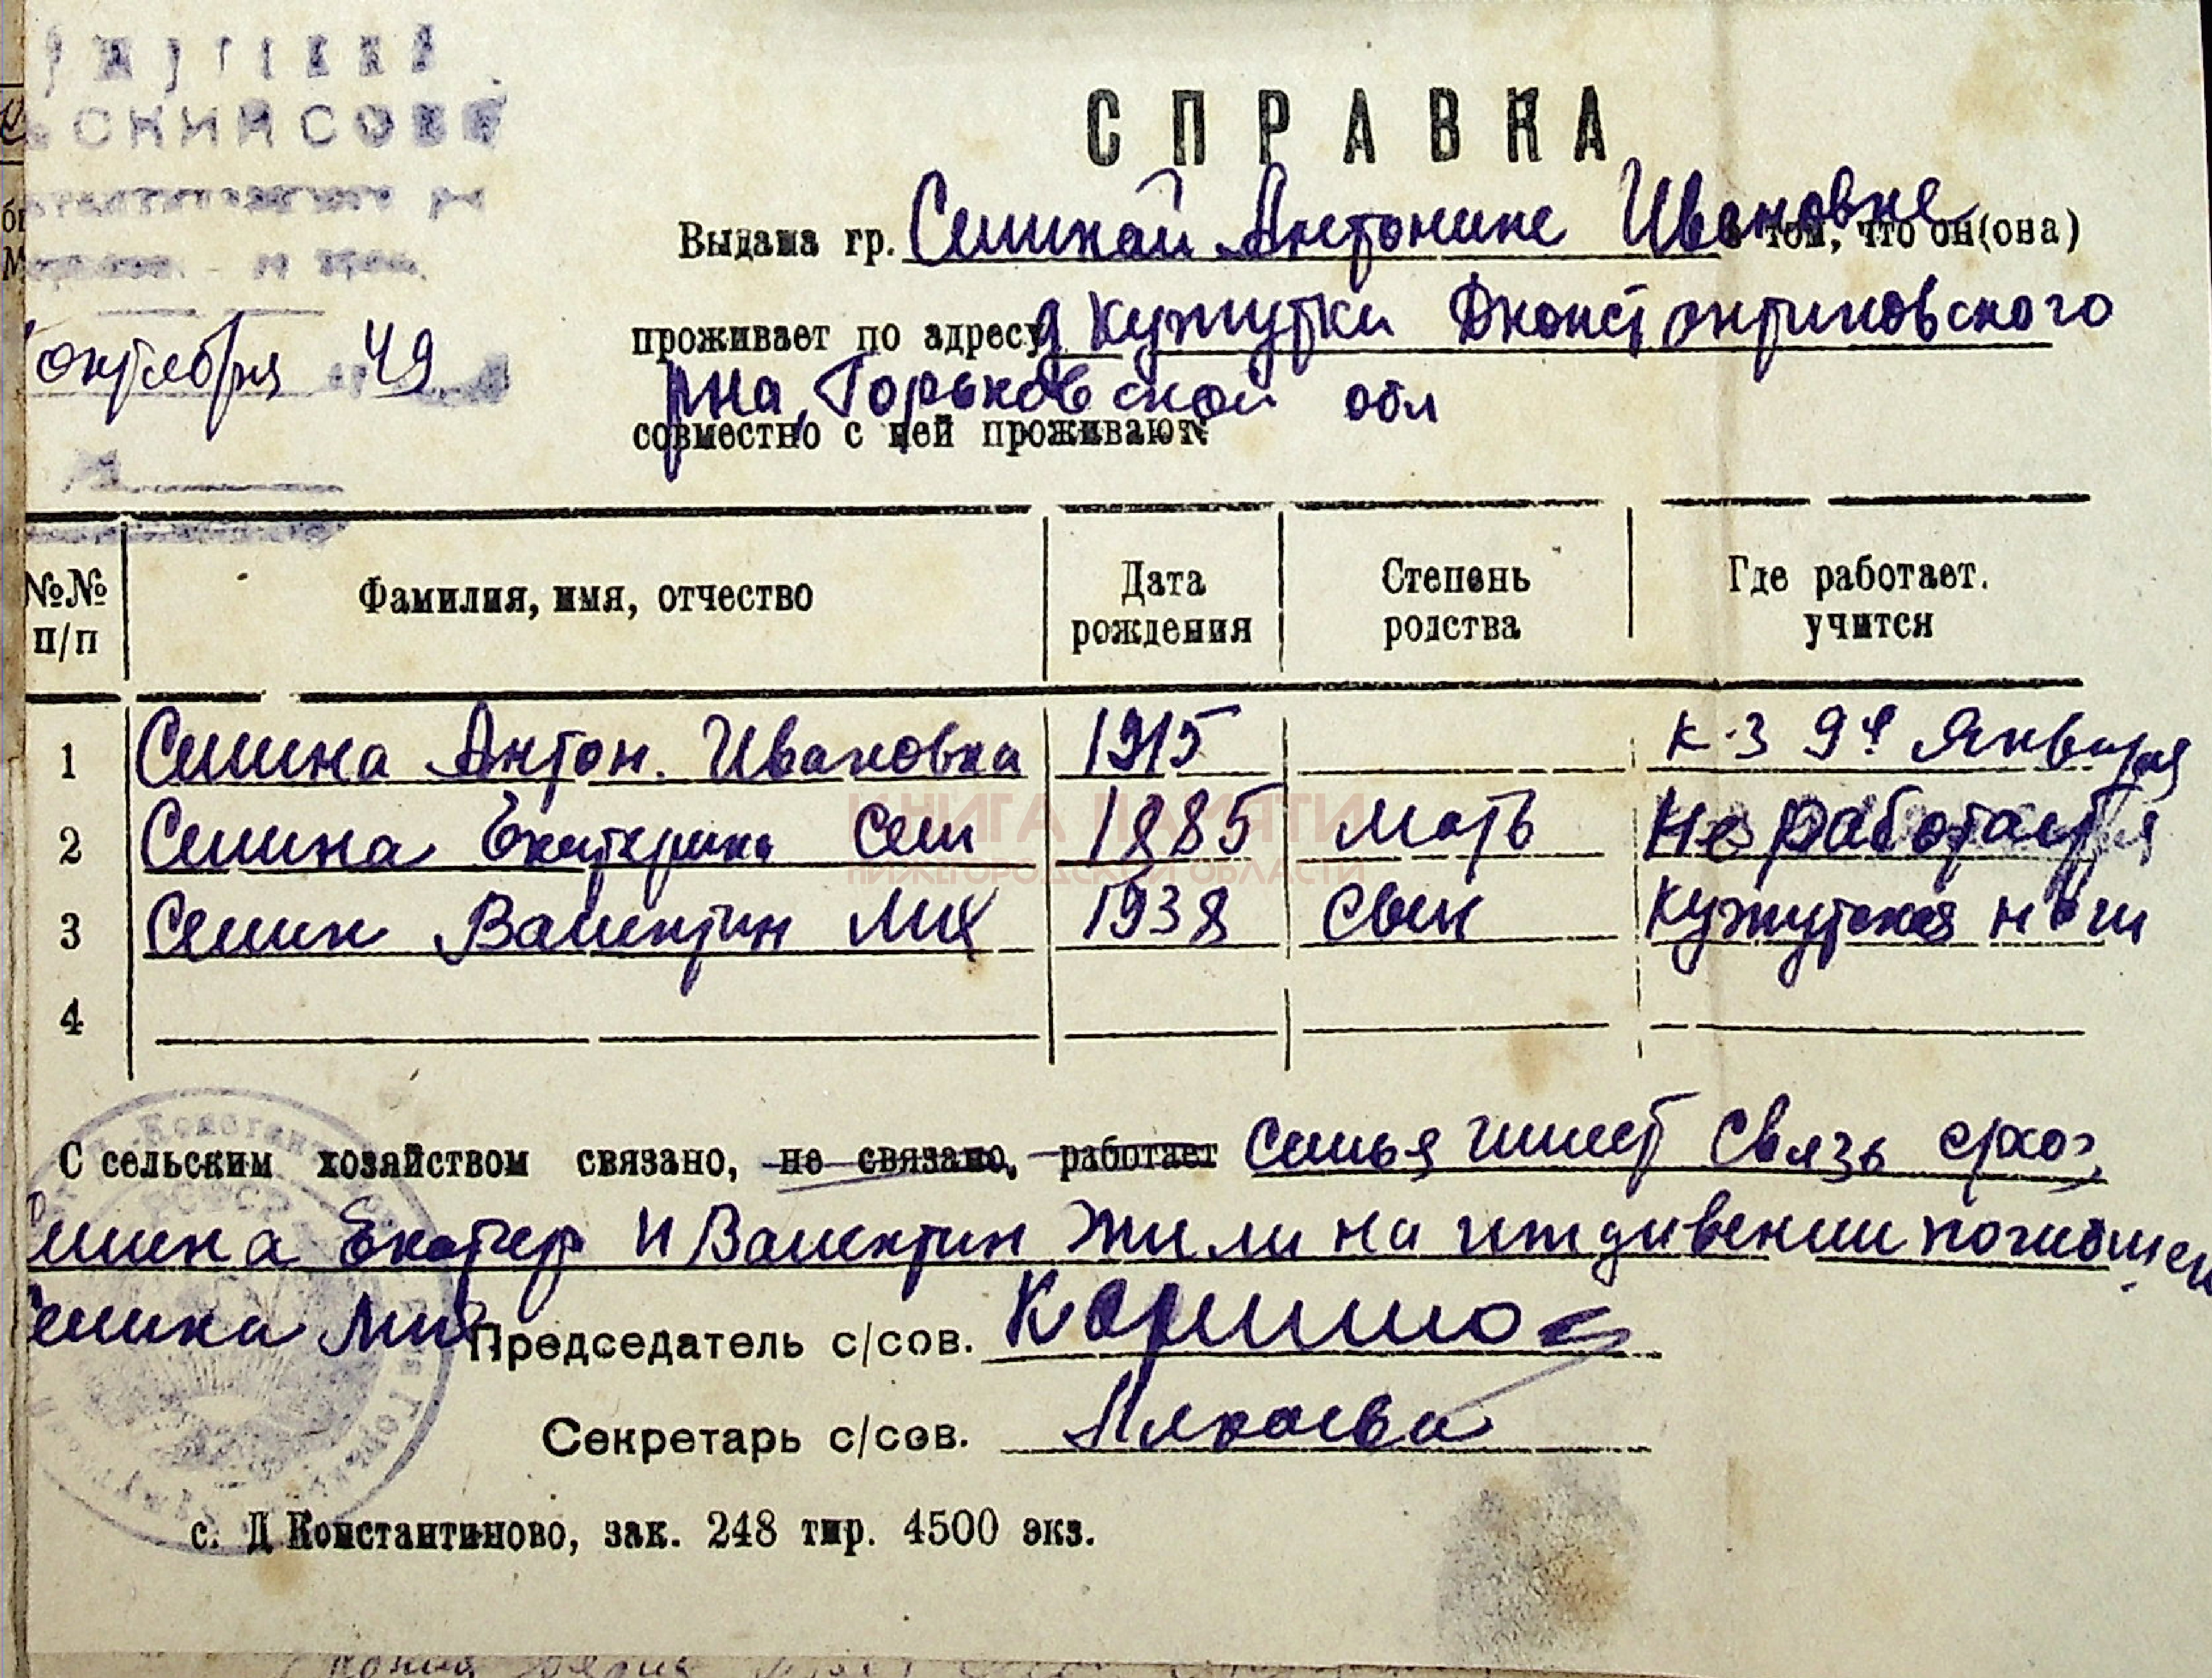 СКИЙ СОВЕТ
октября 49
СПРАВКА
Выдана гр. Семиной Антонине Ивановне в том, что он(она)
проживает по адресу д Кужутки Дконстонтиновского
рна, Горьковской обл
совместно с ней проживают:
№№ п/п Фамилия, имя, отчество Дата рождения Степень родства Где работает. учится
1 Семина Антон. Ивановна 1915 к-з 9е Января
2 Семина Екатерина Сем 1885 мать Не работает
3 Семин Валентин Мих 1938 Сын Кужутская нсш
4
КНИГА ПАМЯТИ
НИЖЕГОРОДСКОЙ ОБЛАСТИ
С сельским хозяйством связано, не связано, работает Семья имеет связь схоз,
Семина Екатер и Валентин жили на иждивении погибшей
Семина Мих
Председатель с/сов.
Секретарь с/сов.
с. Д Константиново, зак. 248 тир. 4500 экз.